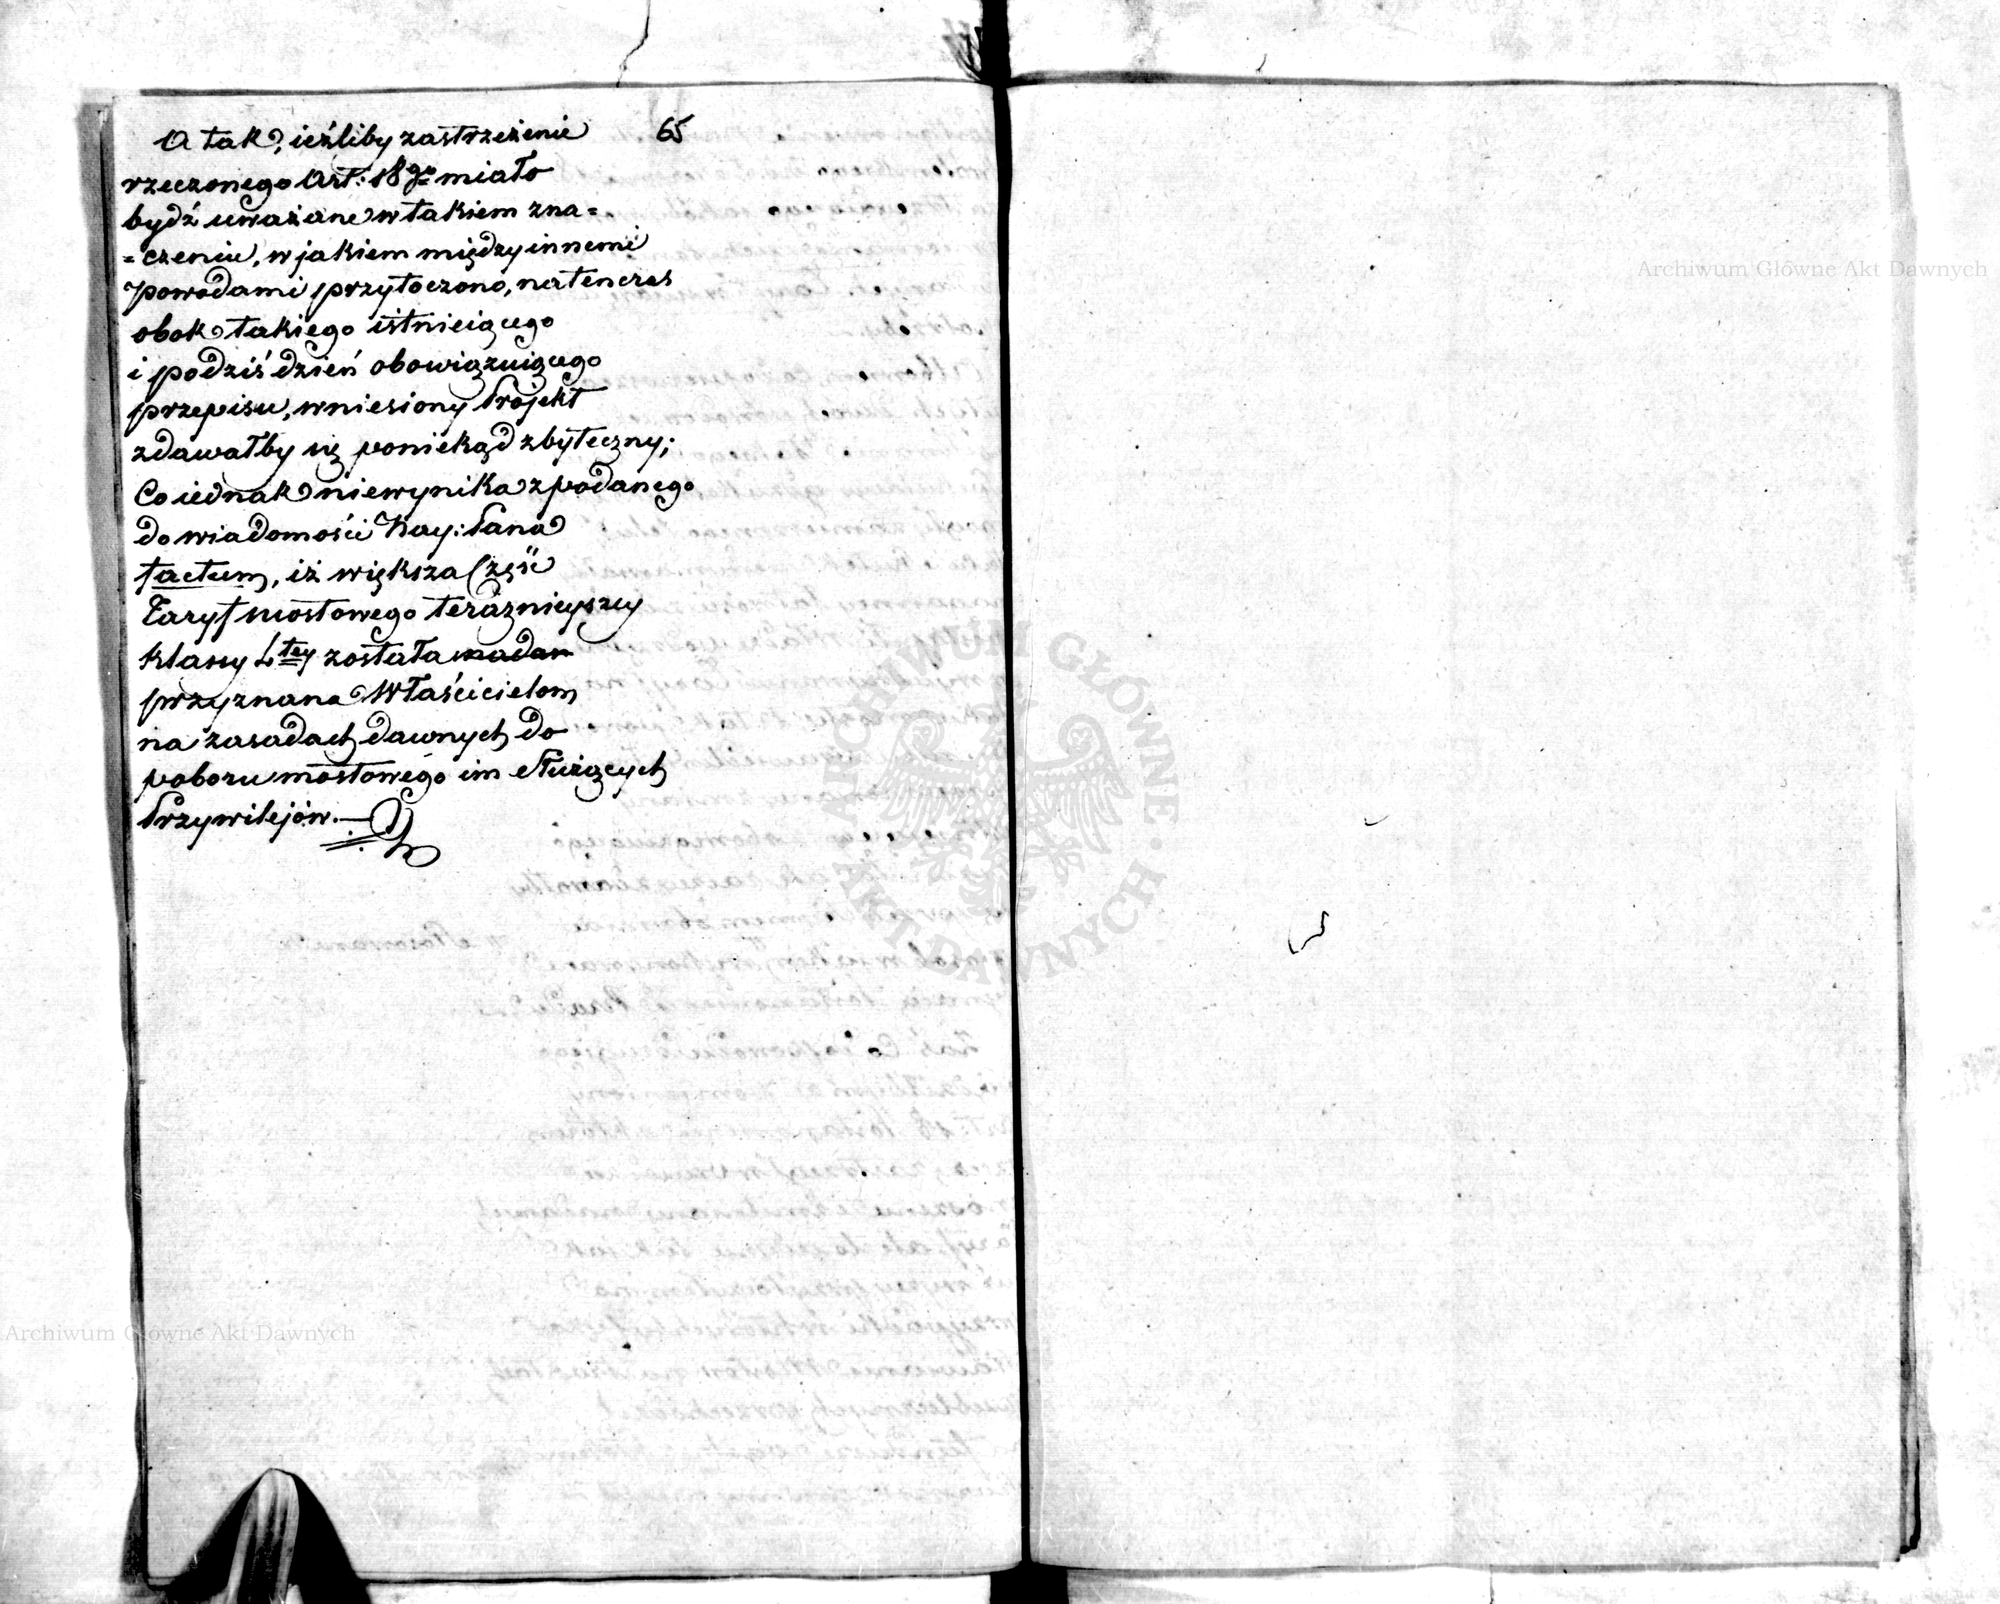 65
A tak, ieźliby zastrzeżenie
rzeczonego Art: 18go miało
bydź uważane w takiem zna=
=czeniu, w jakiem między innemi
powodami przytoczono, natenczas
obok takiego istnieiącego
i podziś dzień obowiązuiącego
przepisu, wniesiony Projekt
zdawałby się poniekąd zbyteczny;
Co iednak niewynika z podanego
do wiadomości Nay: Pana
factum, iż większa Część
Taryf mostowego teraznieyszey
klassy 4tey została nadan
przyznana Właścicielom
na zasadach dawnych do
poboru mostowego im służących
Przywilejów.
Archiwum Główne Akt Dawnych
Archiwum Główne Akt Dawnych
ARCHIWUM GŁÓWNE · AKT DAWNYCH ·